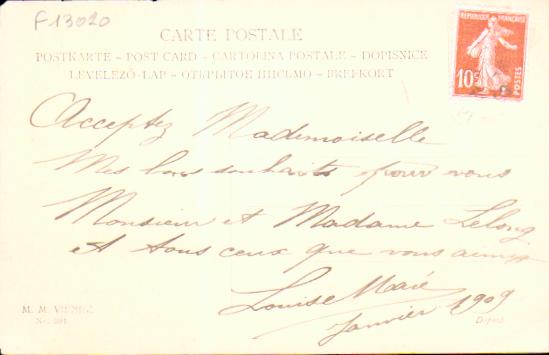 F13020
CARTE POSTALE
POSTKARTE – POST CARD – CARTOLINA POSTALE – DOPISNICE
LEVELEZŐ-LAP – ОТКРЫТОЕ ПИСЬМО – BREFKORT
REPUBLIQUE FRANÇAISE
10c
POSTES
Acceptez Mademoiselle
Mes bons souhaits pour vous
Monsieur et Madame Lelong
et tous ceux que vous aimez
Louise
Janvier 1909
M. M. VIENNE